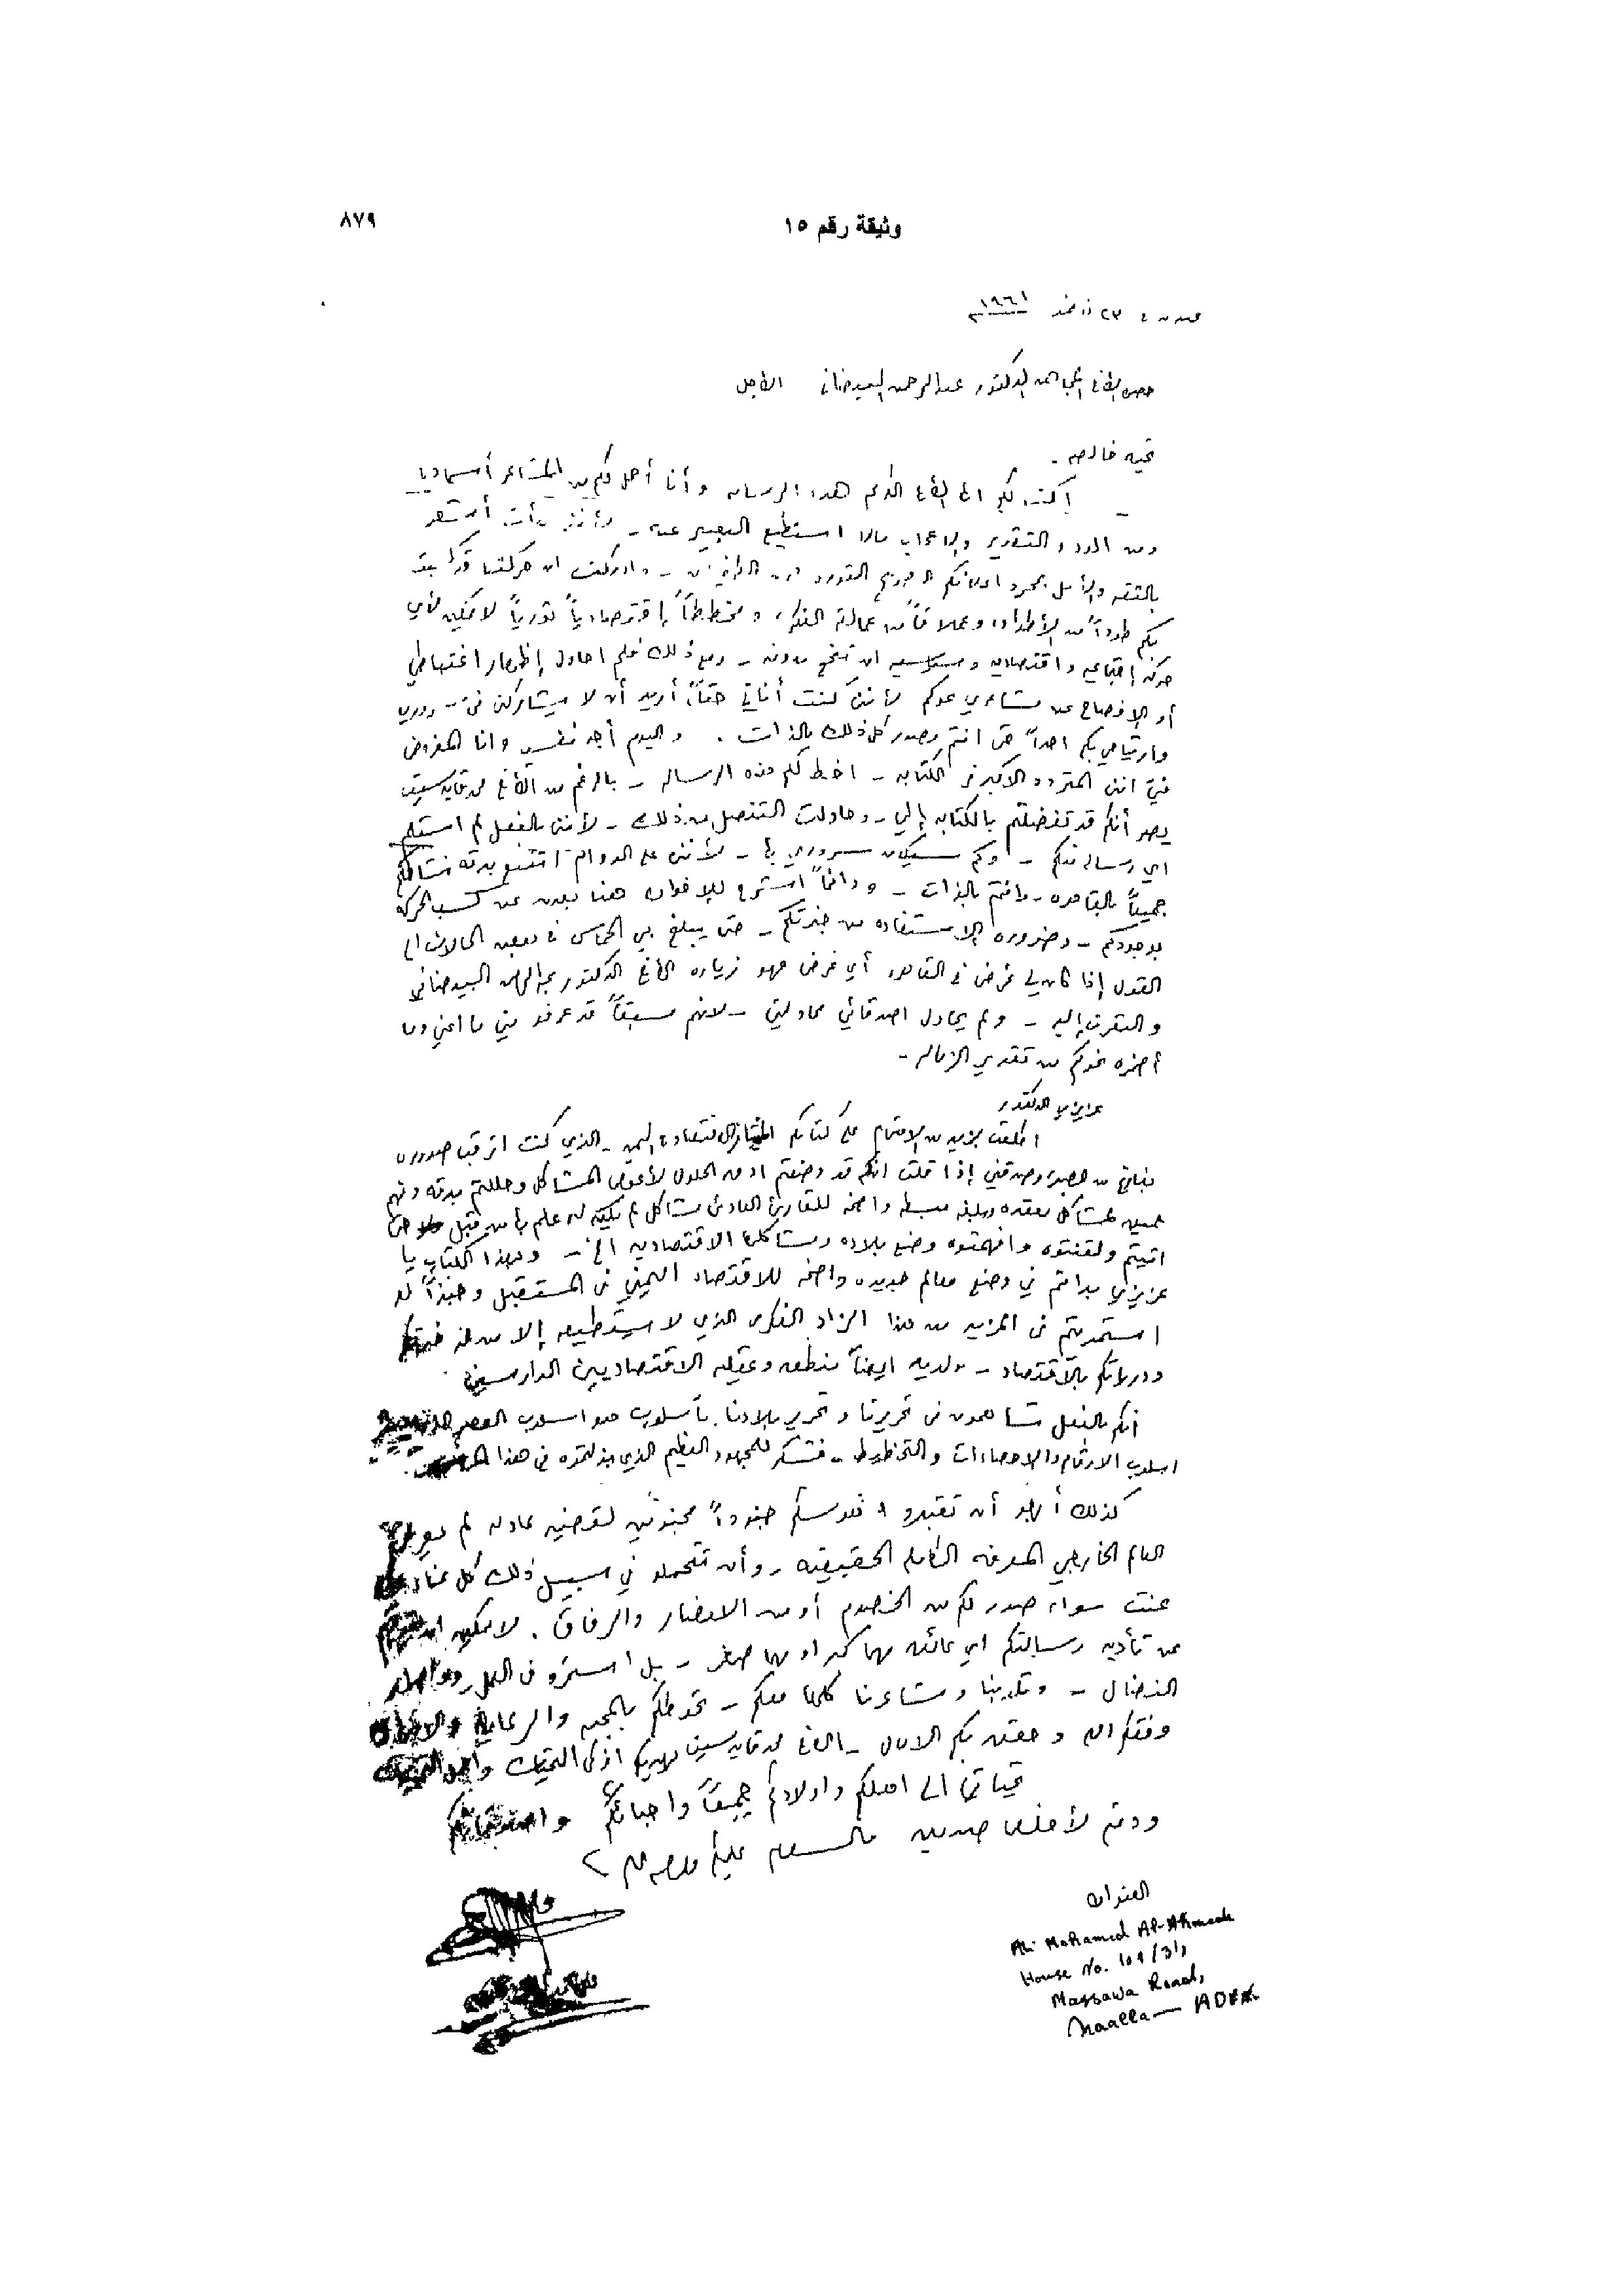 وثيقة رقم ١٥
٨٧٩
عدن ٢٣ نوفمبر ١٩٦١
حضرة الأخ المجاهد الدكتور عبدالرحمن البيضاني الأجل
تحيه خالصه -
أكتب لكم الأخ الدكتور هذه الرساله وأنا أحمل لكم من المشاعر أسماها
ومن الود والتقدير والاعجاب مالا استطيع التعبير عنه - لأنني بدأت أستشعر
بالثقه والأمل بمجرد اعلانكم - وادركت ان حركتنا قد
بكم طوداً من الأطواد وعملاقاً من عمالقة الفكر، ومخططاً إقتصادياً ثورياً لا يمكن لأي
حركه إجتماعيه واقتصاديه وسياسيه ان تنجح بدونه - ومع ذلك فلم احاول إظهار اغتباطي
أو الإفصاح عن مشاعري نحوكم لأنني كنت أنانياً حقاً، أريد أن لا يشاركني في
وارتياحي بكم احداً حتى انتم مصدر كل ذلك بالذات . واليوم أجد نفسي وانا المفروض
في انني المتردد الاكبر في الكتابه - اخط لكم هذه الرساله - بالرغم من الأخ محمد قايد سيف
يصر أنكم قد تفضلتم بالكتابه إلي - وحاولت التنصل من ذلك - لأنني بالفعل لم استلم
اي رساله منكم - وكم سيكون سروري بها - لأنني على الدوام اتتبع بدقه نشاطكم
جميعاً بالقاهره - وانتم بالذات - ودائماً اشرح للاخوان هنا بعدن عن كسب الحركه
بوجودكم - وضروره الاستفاده من خبرتكم - حتى يبلغ بي الحماس في بعض الحالات الى
القول إذا كان لي غرض في القاهره أي غرض فهو زياره الأخ الدكتور عبدالرحمن البيضاني
والتعرف إليه - ولم يحاول اصدقائي مجادلتي - لانهم مسبقاً قد عرفوا مني ما اعني وما
أضمره نحوكم من تقدير الزماله -
عزيزي الدكتور
اطلعت بمزيد من الاهتمام على كتابكم الممتاز اقتصاد اليمن - الذي كنت اترقب صدوره
بفارغ من الصبر وصدقني إذا قلت انكم قد وضعتم ادق الحلول لأعوص المشاكل وحللتم بدقه وفهم
عميق لمشاكل معقده وبلغه مبسطه واضحه للقارئ العادي مشاكل لم يكن له علم بها من قبل حتى
اتيتم ولقنتوه وافهمتوه وضع بلاده ومشاكلها الاقتصاديه الخ - وبهذا الكتاب يا
عزيزي بدأتم في وضع معالم جديده واضحه للاقتصاد اليمني في المستقبل وحبذاً لو
استمريتم في المزيد من هذا الزاد الفكري الذي لا يستطيعه إلا من له خبرتكم
ودرايتكم بالاقتصاد - ولديه ايضاً منطق وعقليه الاقتصاديين الدارسين .
أنكم بالفعل تساهمون في تحريرنا وتحرير بلادنا بأسلوب هو اسلوب العصر
اسلوب الارقام والاحصاءات والتخطيط - فشكراً للمجهود العظيم الذي بذلتموه في هذا
كذلك أرجو أن تعتبروا نفوسكم جنوداً مجندين لقضيه عادله لم يعرف
العالم الخارجي المعرفه الكامله الحقيقيه - وأن تتحملوا في سبيل ذلك كل عناء
عنت سواء صدر لكم من الخصوم أو من الانصار والرفاق . لا يمكن ان
عن تأديه رسالتكم اي عائق مهما كبر او مهما صغر - بل استمروا في العمل وواصلوا
النضال - وقلوبنا ومشاعرنا كلها معكم - تحوطكم بالمحبه والرعايه
وفقكم الله وحقق بكم الامال - الأخ محمد قايد سيف يهديكم ازكى التحيات
تحياتي الى اهلكم واولادكم جميعاً واحبائكم واصدقائكم
ودمتم لأخلص صديق والسلام عليكم ورحمة الله
العنوان
Ali Mohamed Al-Ahmadi
House No. 109/31,
Massawa Road,
Maalla — ADEN